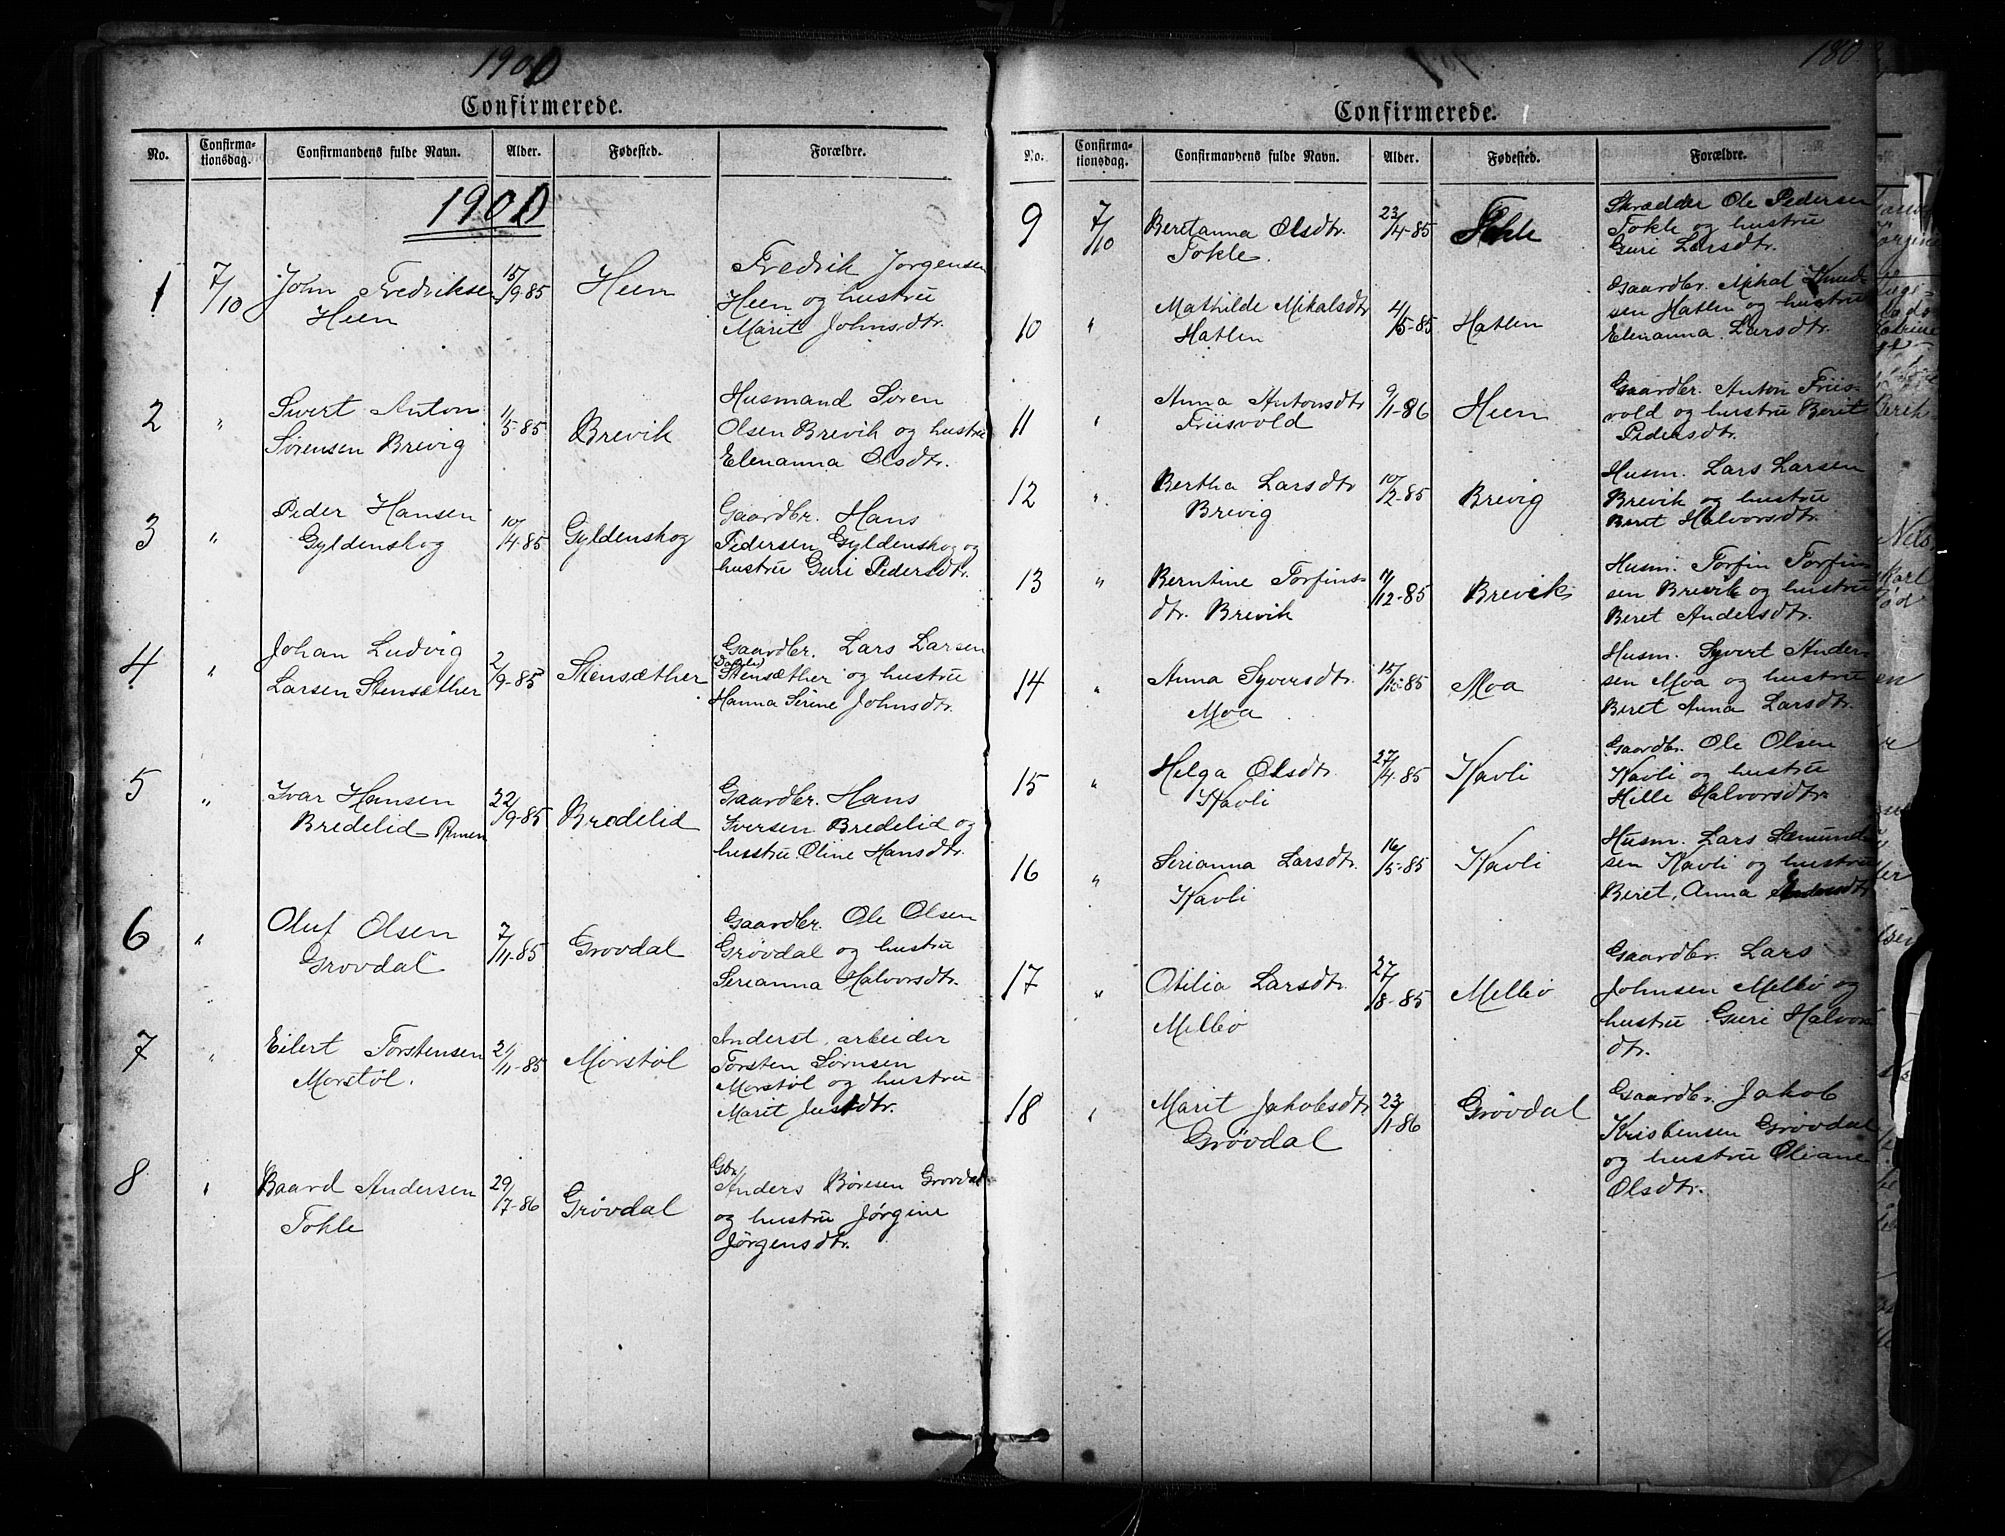 1900
Confirmerede.
No. Confirmationsdag. Confirmandens fulde Navn. Alder. Fødested. Forældre.
1900
1 7/10 John Fredriksen Heen 15/9-85 Heen Fredrik Jørgensen
Heen og hustru
Marit Johnsdtr.
2 " Sivert Anton
Sørensen Brevig 1/5-85 Brevik Husmand Søren
Olsen Brevik og hustru
Elenanna Olsdtr.
3 " Peder Hansen
Gyldenskog 10/4-85 Gyldenskog Gaardbr. Hans
Pedersen Gyldenskog og
hustru Guri Pedersdtr.
4 " Johan Ludvig
Larsen Stensæther 2/9-85 Stensæther Gaardbr. Lars Larsen
Stensæther og hustru
Hanna Serine Johnsdtr.
5 " Ivar Hansen
Bredelid 22/9-85 Bredelid Gaardbr. Hans
Iversen Bredelid og
hustru Oline Hansdtr.
6 " Oluf Olsen
Grovdal 7/11-85 Grovdal Gaardbr. Ole Olsen
Grøvdal og hustru
Serianna Halvorsdtr.
7 " Eilert Torstensen
Morstøl. 21/11-85 Morstøl Anderst, arbeider
Torsten Sørnsen
Morstøl og hustru
Marit
8 " Baard Andersen
Tokle 29/7-86 Grøvdal Gbr
Anders Børesen Grovdal
og hustru Jørgine
Jørgensdtr.
180
Confirmerede.
No. Confirmationsdag. Confirmandens fulde Navn. Alder. Fødested. Forældre.
9 7/10 Beretanna Olsdtr.
Tokle. 23/4-85 Tokle Skrædder Ole Pedersen
Tokle og hustru
Guri Larsdtr.
10 " Mathilde Mikalsdtr
Hatlen 4/5-85 Hatlen Gaardbr. Mikal Knudsen Hatlen og hustru
Elenanna Larsdtr.
11 " Anna Antonsdtr
Friisvold 9/11-86 Heen Gaardbr. Anton Friisvold og hustru Berit
Pedersdtr.
12 " Bertha Larsdtr
Brevig 10/2-85 Brevig Husm. Lars Larsen
Brevik og hustru
Beret Halvorsdtr.
13 " Berntine Torfinsdtr. Brevik 11/12-85 Brevik Husm. Torfin Torfinsen Brevik og hustru
Beret Andersdtr.
14 " Anna Syversdtr.
Moa 15/10-85 Moa Husm. Syvert Andersen Moa og hustru
Beret Anna Larsdtr.
15 " Helga Olsdtr.
Kavli 27/4-85 Kavli Gaardbr. Ole Olsen
Kavli og hustru
Hille Halvorsdtr.
16 " Serianna Larsdtr.
Kavli 16/5-85 Kavli Husm. Lars Sæmundsen Kavli og hustru
Beret, Anna Andersdtr
17 " Otilia Larsdtr.
Melbø 27/8-85 Melbø Gaardbr. Lars
Johnsen Melbø og
hustru Guri Halvorsdtr.
18 " Marit Jakobsdtr
Grøvdal 23/1-86 Grøvdal Gaardbr. Jakob
Kristensen Grøvdal
og hustru Oliane
Olsdtr.